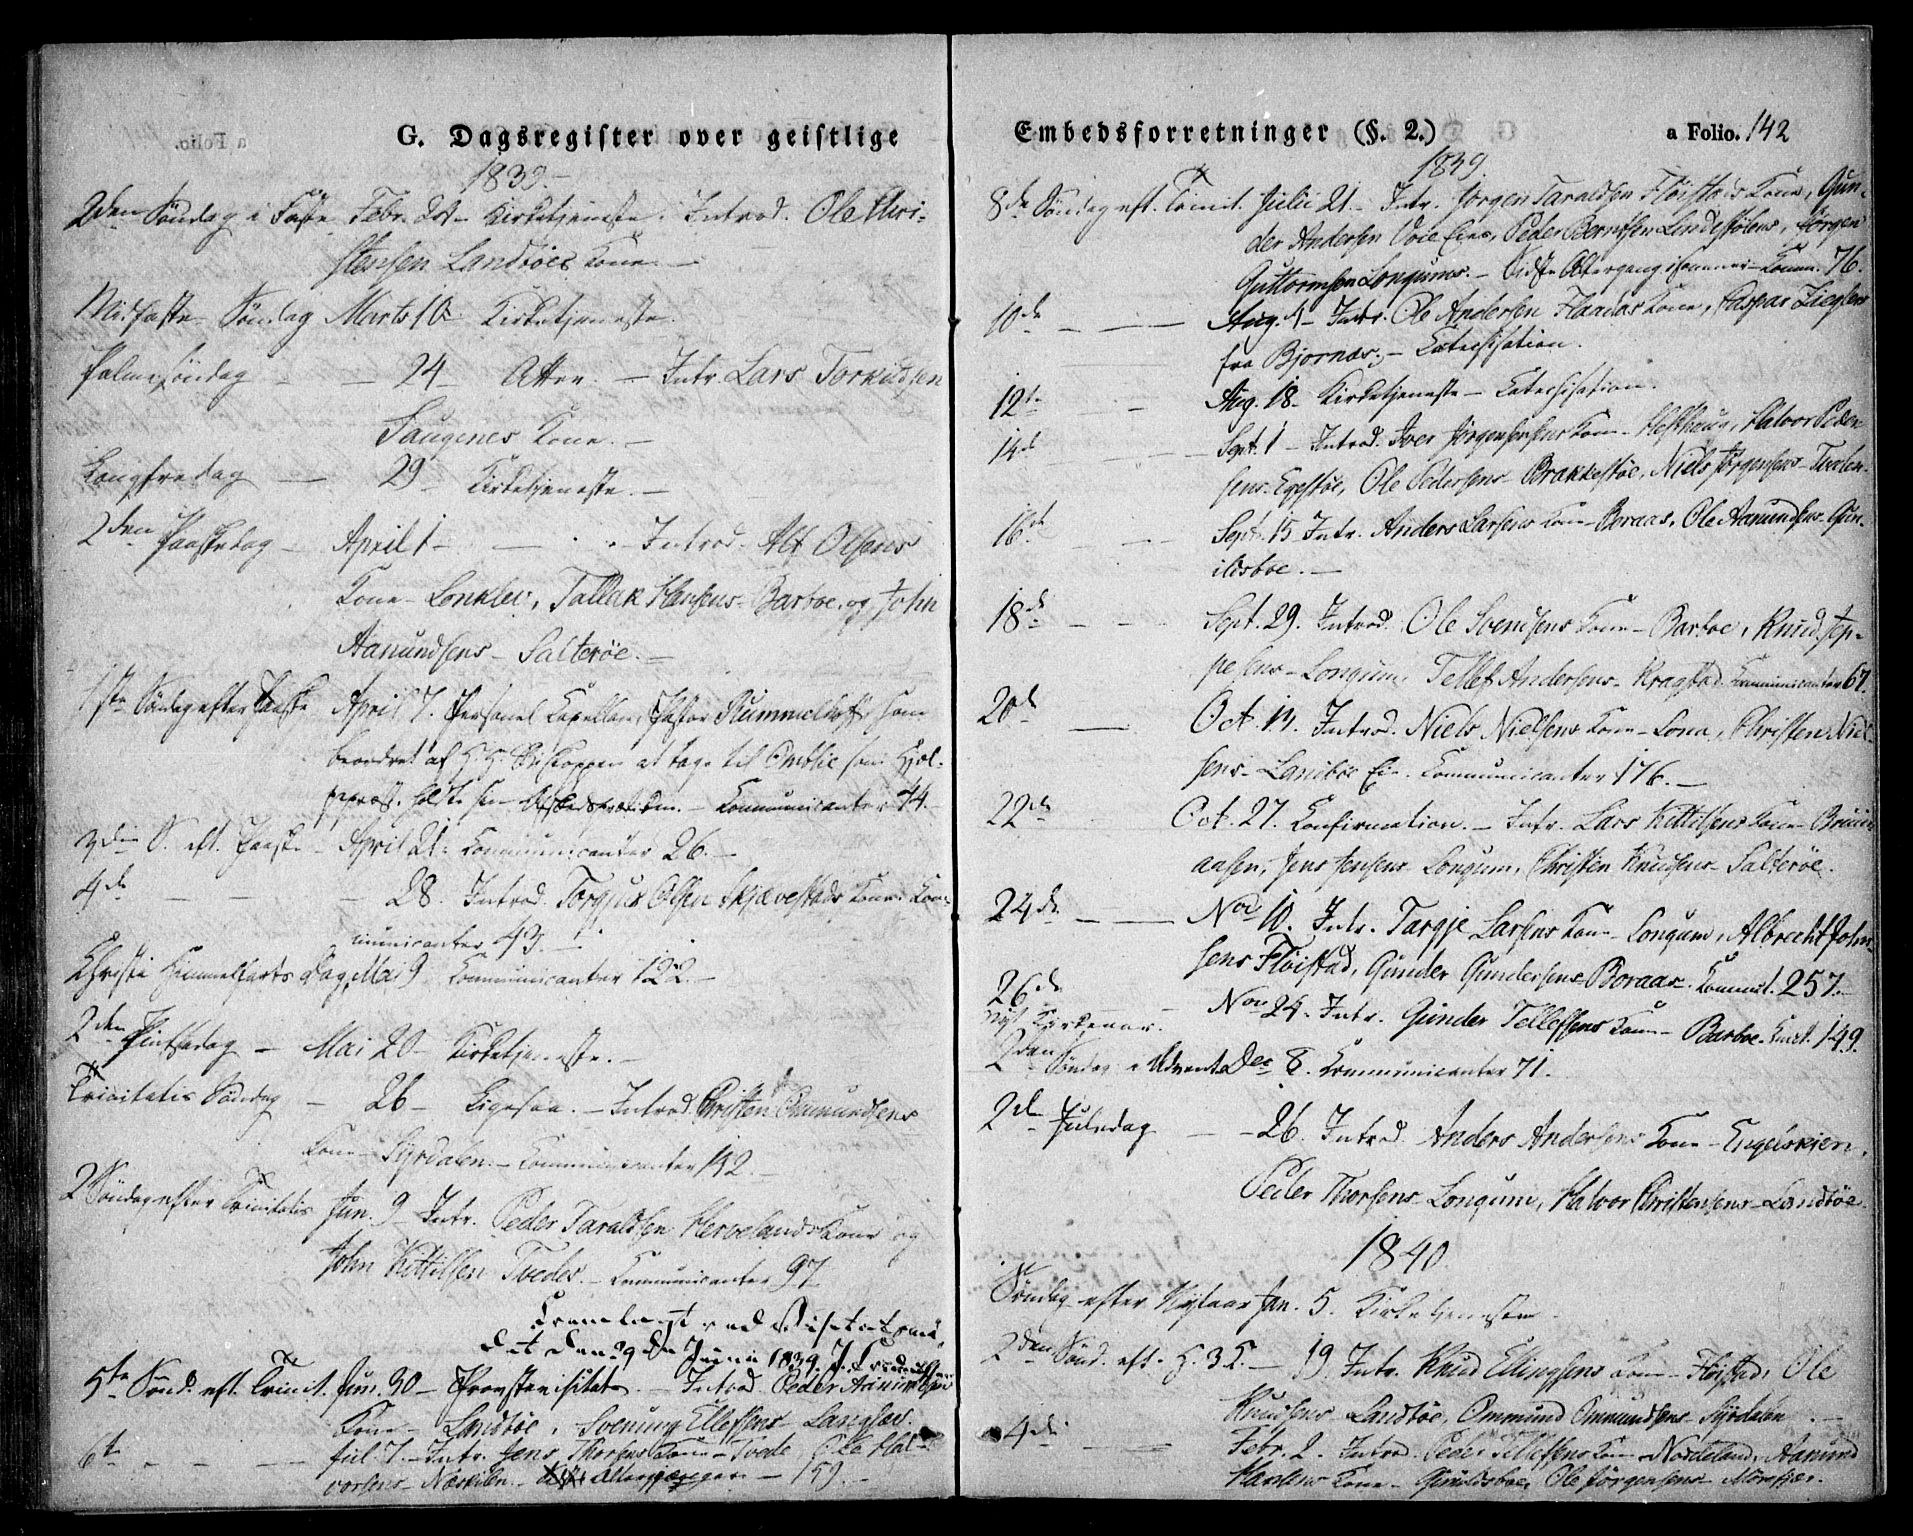 G. Dagsregister over geistlige
1839.
2den Søndag i Faste Febr. 24 - Kirketjeneste. Introd. Ole Chri-
stensen Landtøes Kone. -
Midfaste Søndag Marts 10 Kirketjeneste.
Palmesøndag - - 24 - - Intr. Lars Torkildsen
Saugenes Kone. -
Langfredag - 29 - Kirketjeneste. -
2den Paaskedag - April 1 - - - Introd. Alf Olsens
Kone - Lonklev, Tallak Hansens - Barboe, og John
Aanundsens - Salterøe. -
1ste Søndag efter Paaske April 7. Personel Kapellan, Pastor Rummelhoff, som
beordret af H. H. Biskoppen at tage til Omblie som Hjæl-
pepræst, holdt sin Afskedsprædiken. - Kommunicanter 44.
3die S. eft. Paaske - April 21. Kommunicanter 26. -
4de - - - 28. Introd. Torgjus Olsen Skjævestads Kone. Kom-
municanter 43. -
Christi Himmelfarts Dag, Mai 9. Kommunicanter 122. -
2den Pintsedag - Mai 20 - Kirketjeneste. -
Trinitatis Søndag - 26 - Ligesaa. - Introd. Christen Ommundsens
Kone - Syrdalen. - Kommunicanter 132. -
2 Søndag efter Trinitatis Jun. 9 - Intr. Peder Taraldsen Hervelands Kone og
John Kittilsen Tvedes. - Communicanter 97
Fremlagt ved Visitatsmø-
det den 29de Junii 1839.
5te Sønd. eft. Trinit. Jun. 30 - Provstevisitats. - Introd. Peder Aanundsens
Kone - Landtøe, Svenung Ellefsens - Langsæv.
6te - - - - Jul. 7. - Intr. Jens Thorsens Kone - Tvede, Ole Hal-
vorsens Næskilen. - - 159. -
Embedsforretninger (§. 2.)
a Folio. 142
1839.
8de Søndag eft. Trinit. Julii 21. - Intr. Jørgen Taraldsen Fløistads Kone, Gun-
der Andersen Voie Eies, Peder Berntsen Lindestølens, Jørgen
Guttormsen Longums. - Sidste Altergang i Sommer - Komm. 76.
10de - - Aug. 4 - Intr. Ole Andersen Flaadas Kone, Caspar Zieglers
fra Bjornæs. - Catechisation.
12te - Aug. 18 - Kirketjeneste - Catechisation.
14de - - Sept. 1 - Introd. Iver Jørgensens Kone - Hesthoug, Halvor Peder-
sens - Egestøe, Ole Pedersens - Brakkestøe, Niels Jørgensens -
16de - - Sept. 15 Intr. Anders Larsens Kone - Boraas, Ole Aanundsens - Gun-
ildsboe. -
18de - - Sept. 29. Introd. Ole Svendsens Kone - Barboe, Knud Jep-
pesens - Longum, Tellef Andersens - Kragstad. Kommunicanter 67.
20de - Oct. 13. Introd. Niels Nielsens Kone - Lona, Christen Niel-
sens - Landtøe Eie. Communicanter 176. -
22de Oct. 27. Confirmation. - Intr. Lars Kittilsens Kone -
aasen, Jens Jensens - Longum, Christen Knudsens - Salterøe.
24de - - Nov. 10. Intr. Targje Larsens Kone - Longum, Albrecht John-
sens Fløistad, Gunder Gundersens - Boraas - Kommt. 257. -
26de - - Nov. 24. Intr. Gunder Tellefsens Kone - Barboe - Kmct. 149.
Nyt Kirkeaar.
2den Søndag i Advent Dec. 8. Communicanter 71.
2den Juledag - - 26. Introd. Anders Andersens Kone - Engelsvigen,
Peder Thorsens - Longum, Halvor Christensens - Landtøe.
1840.
Søndag efter Nytaar Jan. 5. Kirketjeneste
2den Sønd. eft. H. 3 K. - 19. Intr. Knud Ellingsens Kone - Fløistad, Ole
Knudsens - Landtøe, Ommund Ommundsens - Syrdalen. -
4de - Febr. 2. Introd. Peder Tellefsens Kone - Nordeland, Aanund
Kone - Gunildsboe, Ole Jørgensens -